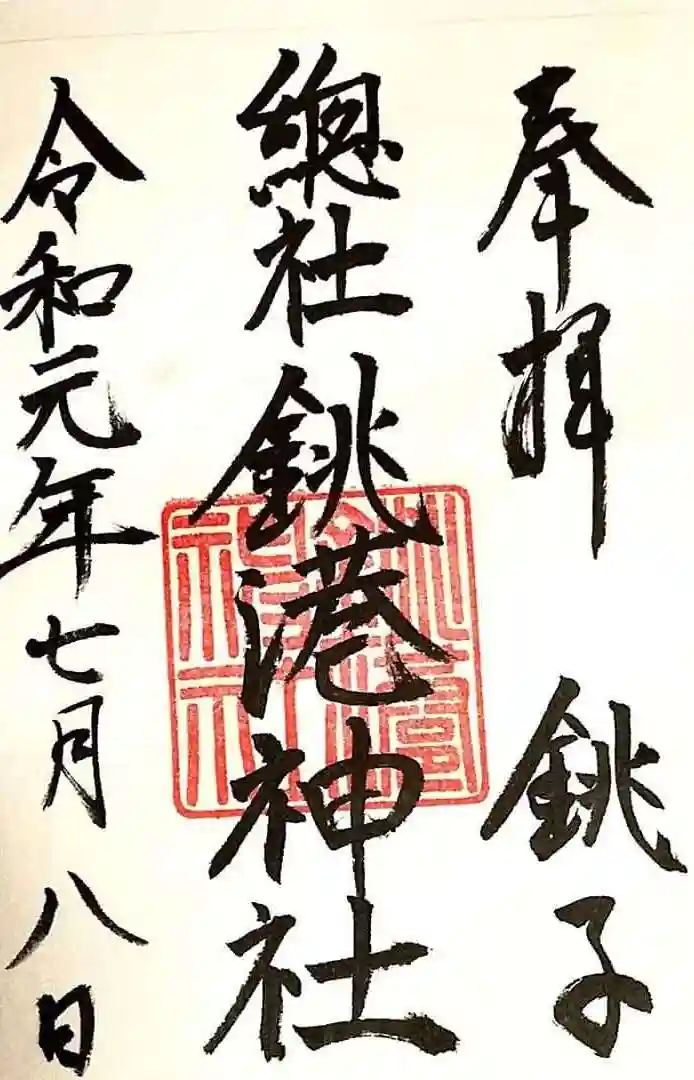 奉拝 銚子
總社 銚港神社
令和元年七月八日
銚港神社